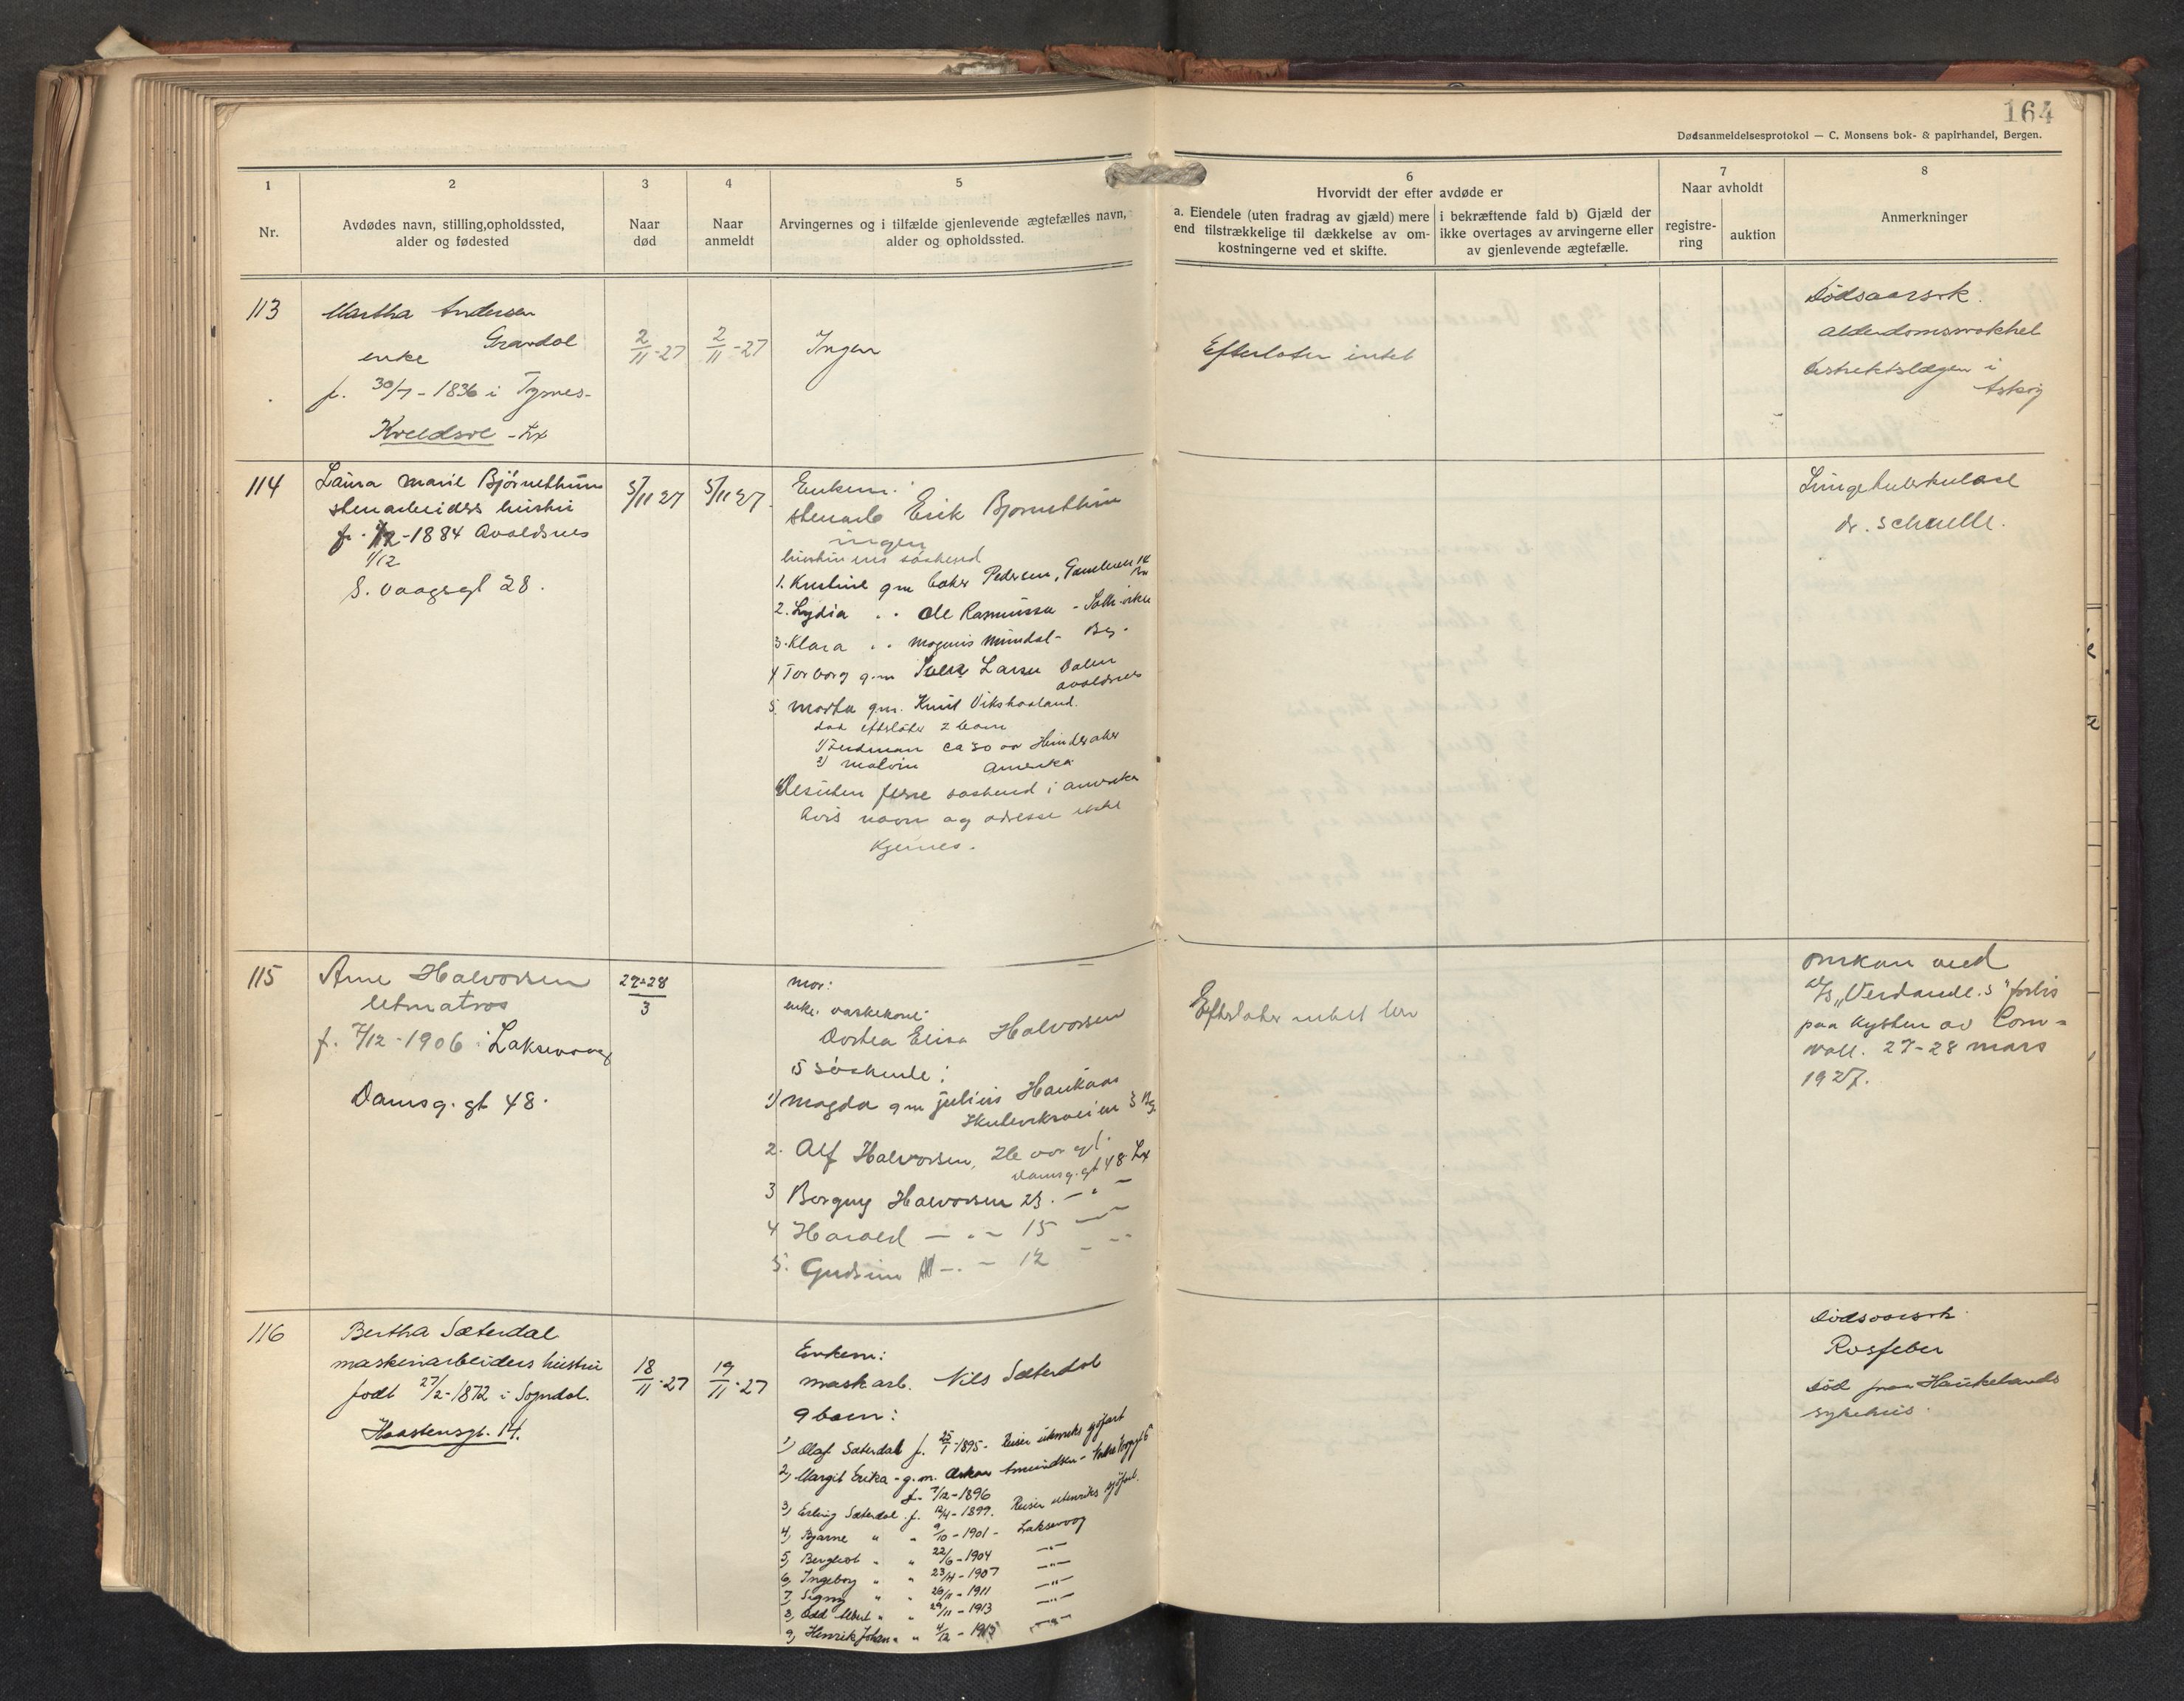 164
Dødsanmeldelsesprotokol — C. Monsens bok- & papirhandel, Bergen.
1
Nr.
2
Avdødes navn, stilling, opholdssted,
alder og fødested
3
Naar
død
4
Naar
anmeldt
5
Arvingernes og i tilfælde gjenlevende ægtefælles navn,
alder og opholdssted.
6
Hvorvidt der efter avdøde er
a. Eiendele (uten fradrag av gjæld) mere
end tilstrækkelige til dækkelse av om-
kostningerne ved et skifte.
i bekræftende fald b) Gjæld der
ikke overtages av arvingerne eller
av gjenlevende ægtefælle.
7
Naar avholdt
registre-
ring
auktion
8
Anmerkninger
113
Martha Andersen
Gravdal
enke
f. 30/7 - 1836 i
Kveldsol - Lx
2/11-27
2/11-27
Ingen
Efterlater intet
Dødsaarsak.
alderdomssvakhet
distriktslægen i
Askøy
114
Laura Marie Bjørnethun
stenarbeiders hustru
f. 1/12-1884 Avaldsnes
1/12
S. Vaagsgt 28.
5/11 27
5/11 27.
Enkem.:
stenarb Erik Bjørnethun
ingen
hustruens søskend
1. Kristine gm Pedersen,
2. Lydia " " Ole Rasmussen -
3. Klara " " Magnus Mundal - Bg.
4 Torborg g.m Larsen Dalen
avaldsnes
5. Marta gm. Knut Vikshaaland.
død efterlater 2 barn
1) ca 30 aar
2) Malvin Amerika
Desuten flere søskend i amerika
hvis navn og adresse ikke
kjennes.
Lungetuberkulose
dr. Schnelle.
115
Arne Halvorsen
letmatros
f. 7/12 - 1906 i Laksevaag
Damsg. gt 48.
27-28
3
mor:
enke, vaskekone:
Dorthea Elisa Halvorsen
5 søskende:
1) Magda gm Julius Haukaas
3 Bg.
2. Alf Halvorsen, 26 aar gl.
Damsg. gt 48 Lx
3 Borgny Halvorsen 23. - " -
4 Harald — " — 15 — " —
5. Gudrun — " — 12 - " -
Efterlater intet
omkom ved
D/S "Verdande.s" forlis
paa kysten av Corn-
wall. 27-28 mars
1927.
116
Bertha Sæterdal
maskinarbeiders hustru
født 27/2-1872 i Sogndal.
Haastensgt. 14.
18/11-27
19/11-27
Enkem:
maskarb. Nils Sæterdal
9 barn:
1) Olaf Sæterdal f. 25/1-1895 - Reiser utenriks sjøfart
2) Margit Erika - g.m. Oskar Amundsen -
f. 7/12-1896
3) Erling Sæterdal f. 12/4-1899. Reiser utenriks sjøfart.
4) Bjarne " " 9/10-1901 - Laksevaag
5) Bergliot " " 22/6-1904 — " —
6) Ingeborg " " 23/4-1907 — " —
7) Signy " " 26/11-1911 — " —
8) Odd " " 29/11-1913 — " —
9) Henrik Johan " " 4/12-1915 — " —
Dødsaarsak:
Rosfeber
Død paa Haukelands
sykehus.